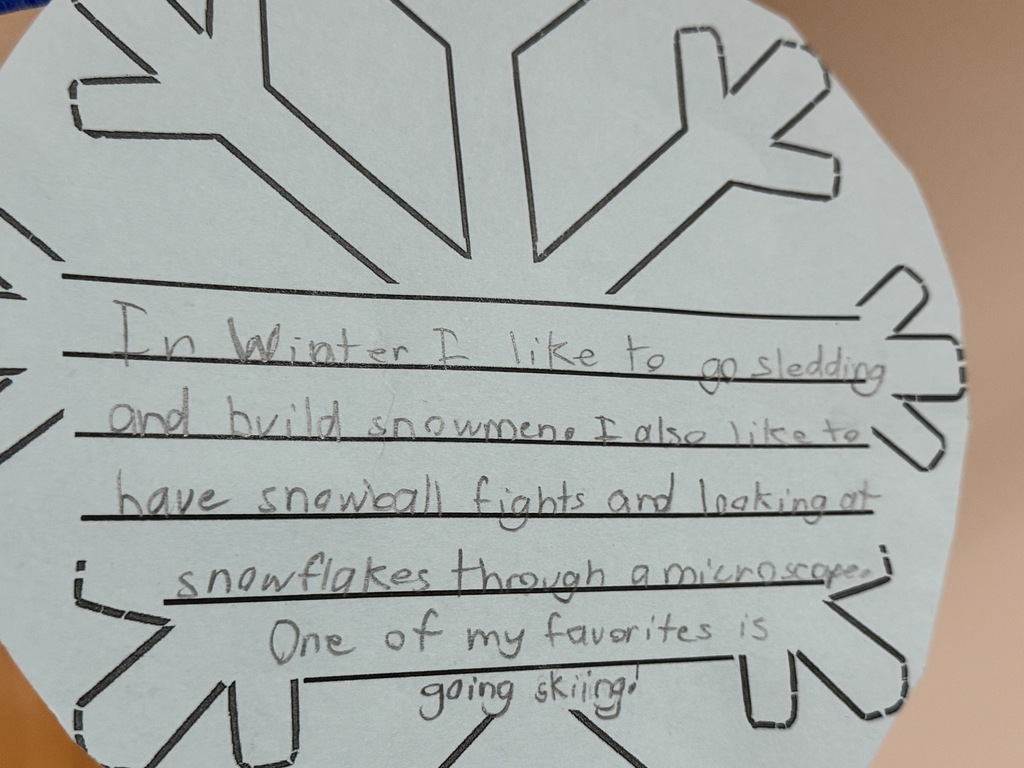 In Winter I like to go sledding
and build snowmen. I also like to
have snowball fights and looking at
snowflakes through a microscope.
One of my favorites is
going skiing!